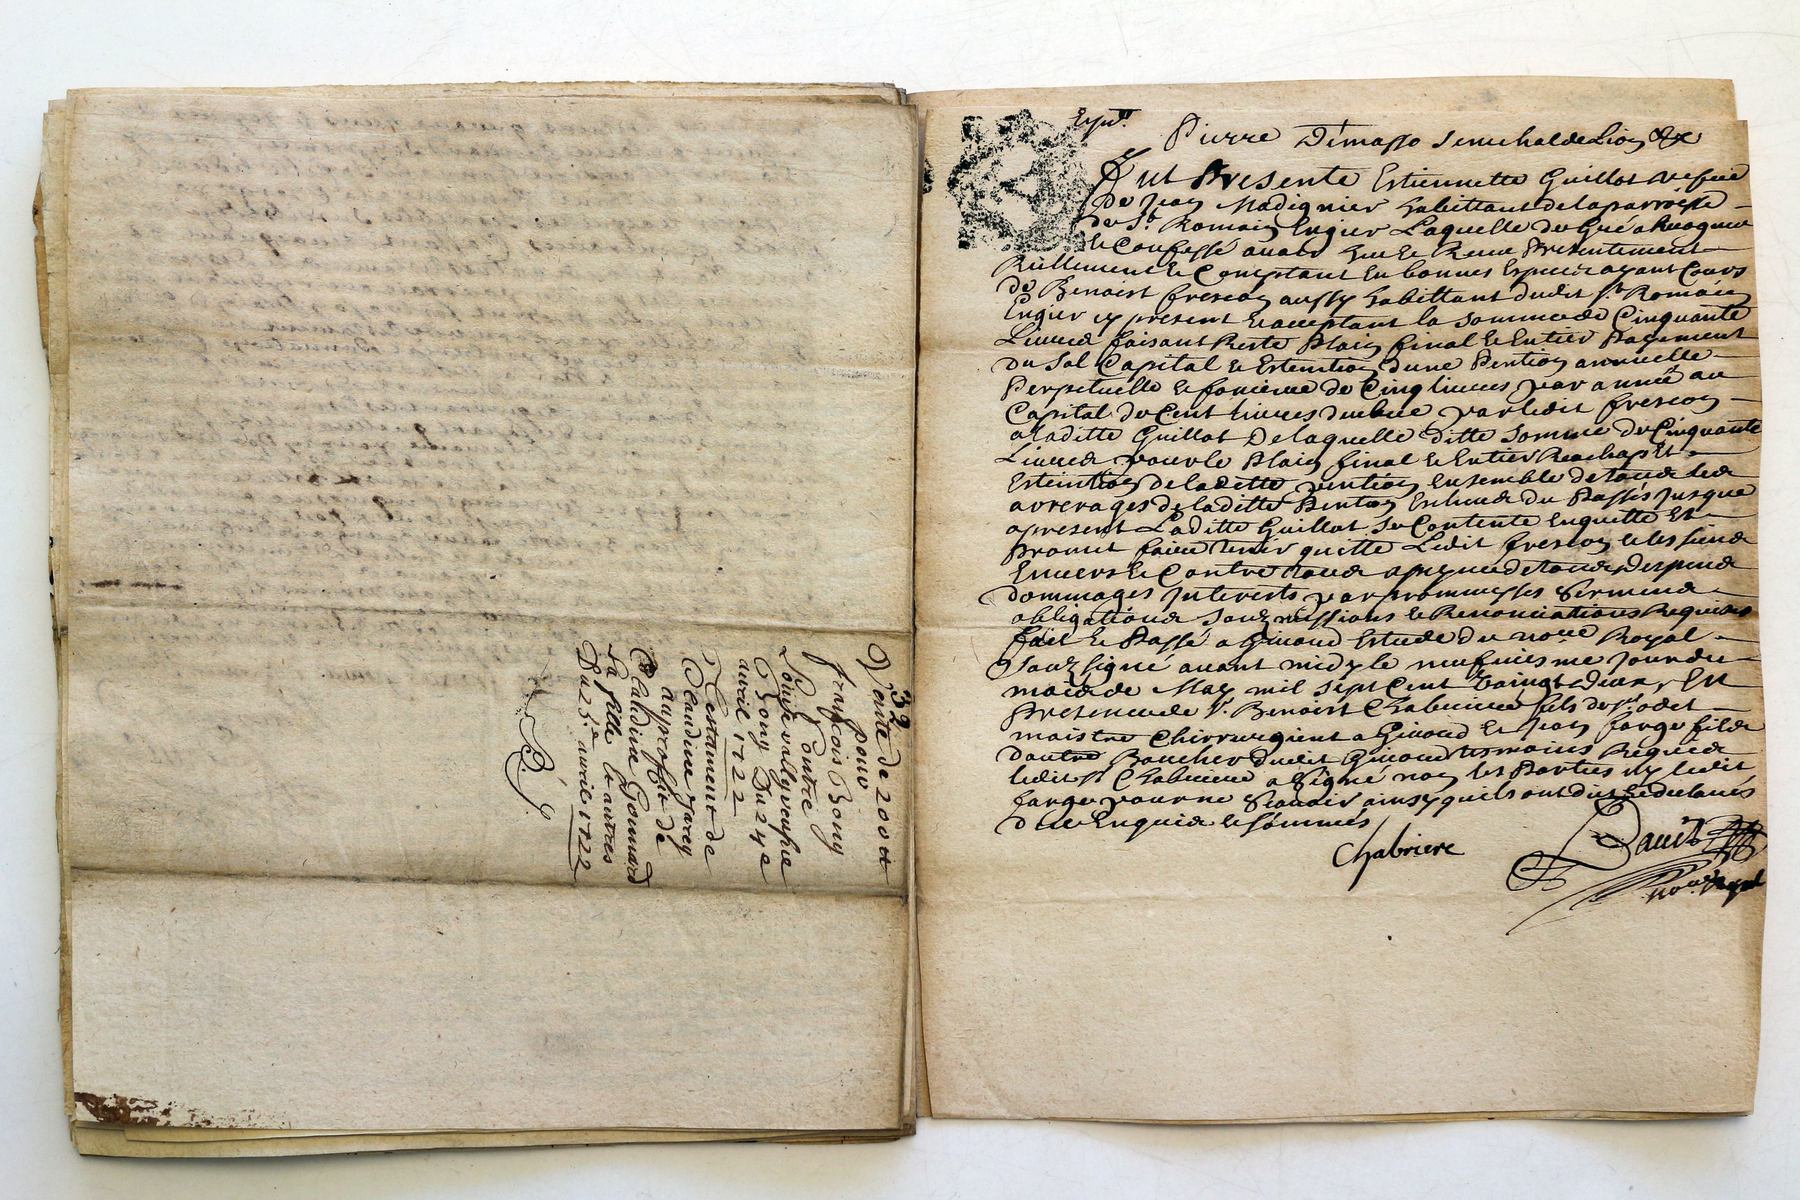 32
Vente de 200 ₶
pour
françois Bony
Contre
Louise vally veufve
Bony Du 24e
avril 1722
Testament de
Claudine Jarey
au proffit de
Claudine Goumard
sa fille & autres
Du 25e avril 1722
Expn.
Pierre Dimasso Senechal de Lion &c
Fut Presente Estiennette Guillot vefue
De Jean Madignier habittant de la parroisse
de St. Romain Engier Laquelle de Gré a Recogneu
& Confessé auoir Heu & Receu Presentement
Réellement & Comptant En bonnes Especes ayant Cours
de Benoist frescon aussy habittant dudit St. Romain
Engier cy present & acceptant la somme de Cinquante
Liures faisant Reste Plain final & Entier Payement
du Sol Capital & Extention d'une Pention annuelle
Perpetuelle & fonciere de Cinq liures par année au
Capital de Cent liures deubue par ledit frescon
a laditte Guillot De laquelle ditte Somme de Cinquante
Liures pour le Plain final & Entier Reachapt Et
Esteintion de laditte pention Ensemble de tous les
arrerages de laditte Pention Escheus du Passés Jusque
apresent Laditte Guillot Se Contente Enquitte Et
Promet faire tenir quitte Ledit frescon & les siens
Enuers & Contre tous a peyne de tous despens
dommages Interests par prommesses Serments
obligations Soubmissions & Renonciations Requises
fait & Passé a Giuord Estude du nore Royal
Soubsigné auant midy le neufuiesme Jour du
mois de May mil Sept Cent Vaingt deux, En
Presence de Sr. Benoist Chabriere fils de Sr odet
maistre Chirrurgient a Giuord & Jean farge fils
dautre Boucher dudit Giuord tesmoins Requis
ledit Sr Chabriere a Signé non les Parties ny ledit
farge pour ne Scauoir ainsy quils ont dit & declarés
de ce Enquis & Sommés
Chabriere
Dauid
nore Royal